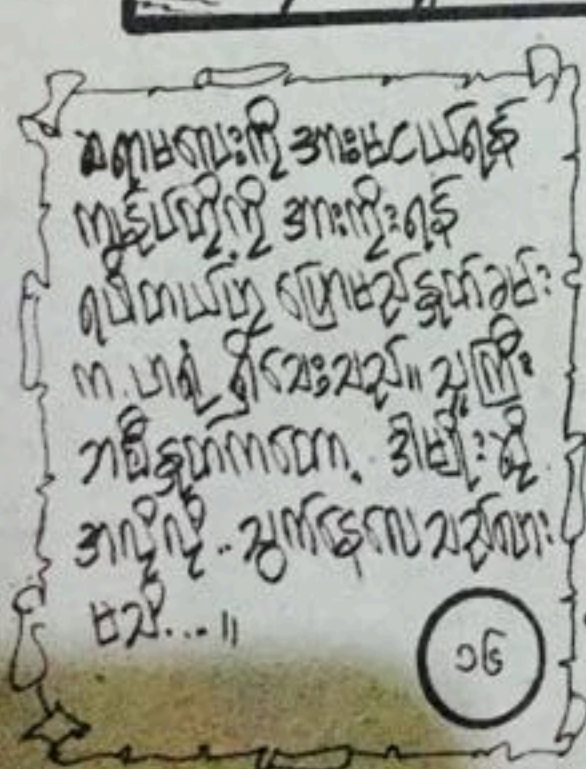 ဆရာမလေးကို အားမငယ်ရန်
ကျွန်ုပ်တို့ကို အားကိုးရန်
ရဲတိုက် ပြောမည့်နှုတ်ခမ်း
က ဟာရုံ ရှိသေးသည်။ သူကြီး
ဘစိနှုတ်ကတော့ ဒါမျိုးဆို
အလိုလို.. သွက်နေလေသည်လား
မသိ...။
၁၆